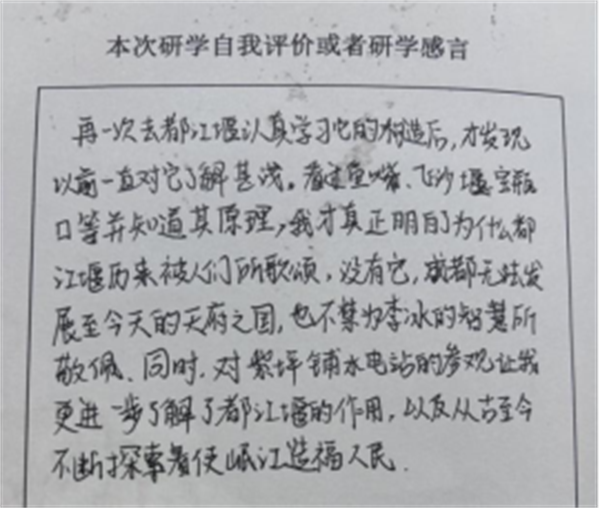 本次研学自我评价或者研学感言
再一次去都江堰认真学习它的构造后，才发现
以前一直对它了解甚浅。看鱼嘴、飞沙堰、宝瓶
口等并知道其原理，我才真正明白了为什么都
江堰历来被人们所歌颂，没有它，成都无法发
展至今天的天府之国，也不禁为李冰的智慧所
敬佩、同时，对紫坪铺水电站的参观让我
更进一步了解了都江堰的作用，以及从古至今
不断探索着使岷江造福人民.